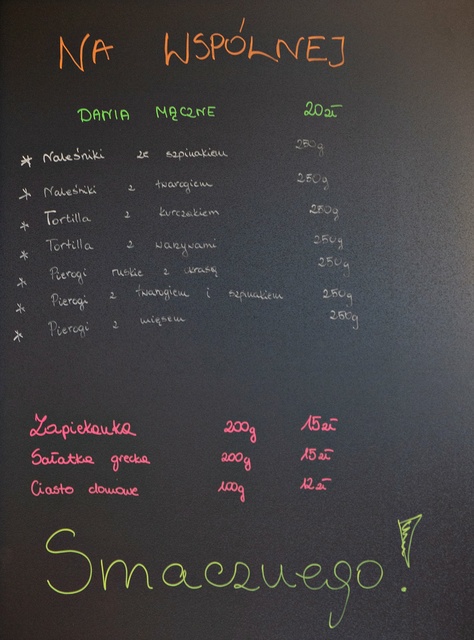 NA WSPÓLNEJ
DANIA MĄCZNE 20zł
* Naleśniki ze szpinakiem 250g
* Naleśniki z twarogiem 250g
* Tortilla z kurczakiem 250g
* Tortilla z warzywami 250g
* Pierogi ruskie z okrasą 250g
* Pierogi z twarogiem i szpinakiem 250g
* Pierogi z mięsem 250g
Zapiekanka 200g 15zł
Sałatka grecka 200g 15zł
Ciasto domowe 100g 12zł
Smacznego!